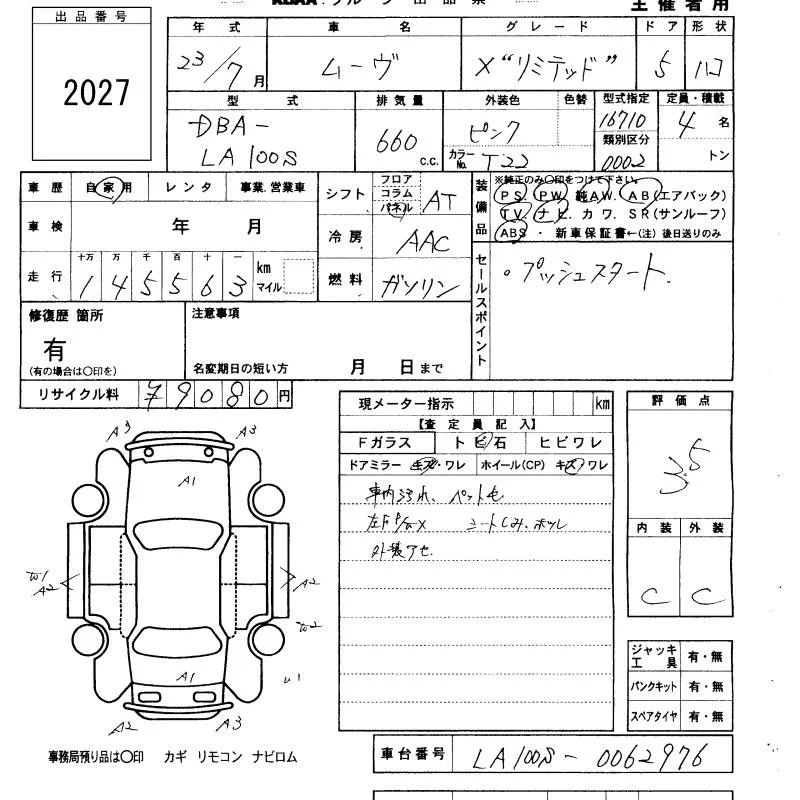 出品番号
2027
主催者用
年式 車名 グレード ドア 形状
23/7月 ムーヴ X"リミテッド" 5 ハコ
型式 排気量 外装色 色替 型式指定 定員・積載
DBA- LA100S 660 c.c. ピンク 16710 4名
カラーNo. T22 類別区分 0002 トン
車歴 自家用 レンタ 事業.営業車
シフト フロア コラム パネル AT
装備品 ※純正のみ〇印をつけて下さい。
PS. PW. 純AW. AB(エアバック)
TV. ナビ. カワ. SR(サンルーフ)
ABS ・ 新車保証書←(注) 後日送りのみ
車検 年 月
冷房 AAC
走行 十万 万 千 百 十 一
1 4 5 5 6 3 km マイル
燃料 ガソリン
セールスポイント ・プッシュスタート.
修復歴 箇所
有
(有の場合は〇印を)
注意事項
名変期日の短い方 月 日まで
リサイクル料 ¥9080円
現メーター指示 km
【査定員記入】
Fガラス トビ石 ヒビワレ
ドアミラー キズ・ワレ ホイール(CP) キズ・ワレ
車内汚れ、ペット毛
外装アセ.
評価点
3.5
内装 外装
C C
A3 A3
A1
A2 A2
A1
A2 A3
ジャッキ 工具 有・無
パンクキット 有・無
スペアタイヤ 有・無
事務局預り品は〇印 カギ リモコン ナビロム
車台番号 LA100S-0062976